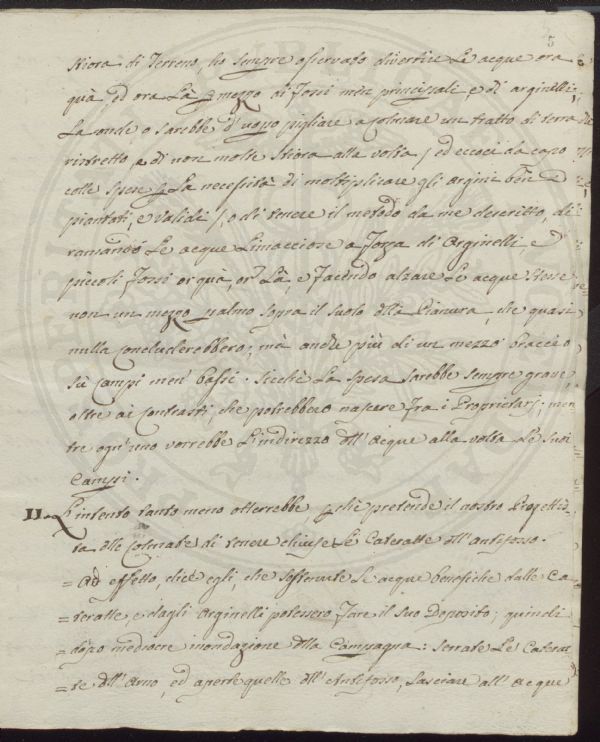 5
Stiora di Terreno, ho sempre osservato divertire Le acque ora
quà, ed ora Là p mezzo di Fossi men principali, e di arginelli;
La onde o sarebbe d'uopo pigliare a colmare un tratto di terra
ristretto, e di non molte Stiora alla volta / ed eccoci da capo
colle spese p La necessità di moltiplicare gli argini bên
piantati, e validi /, o di tenere il metodo da me descritto, di
ramando Le acque Limacciose a Forza di Arginelli, e
piccoli Fossi or quà, or Là, e Facendo alzare Le acque stesse
non un mezzo palmo sopra il suolo dlla Pianura, che quasi
nulla concluderebbero; mà anche più di un mezzo braccio
sù campi men bassi. Sicchè La spesa sarebbe sempre grave,
oltre ai Contrasti, che potrebbero nascere Fra i Proprietarj; men
tre ogn'uno vorrebbe L'indirizzo dll'Acque alla volta de suoi
Campi.
II. L'intento tanto meno otterrebbe, p chè pretende il nostro Progetti-
sta dlle Colmate di tenere chiuse Le Cateratte dll'antifosso.
= Ad effetto, dice egli, che sostenute Le acque benefiche dalle Ca-
= teratte, e dagli Arginelli potessero Fare il suo Deposito; quindi
= dopo mediocre inondazione dlla Campagna: serrate Le Caterat
= te dll'Arno, ed aperte quelle dll'Antifosso, Lasciare all'Acque